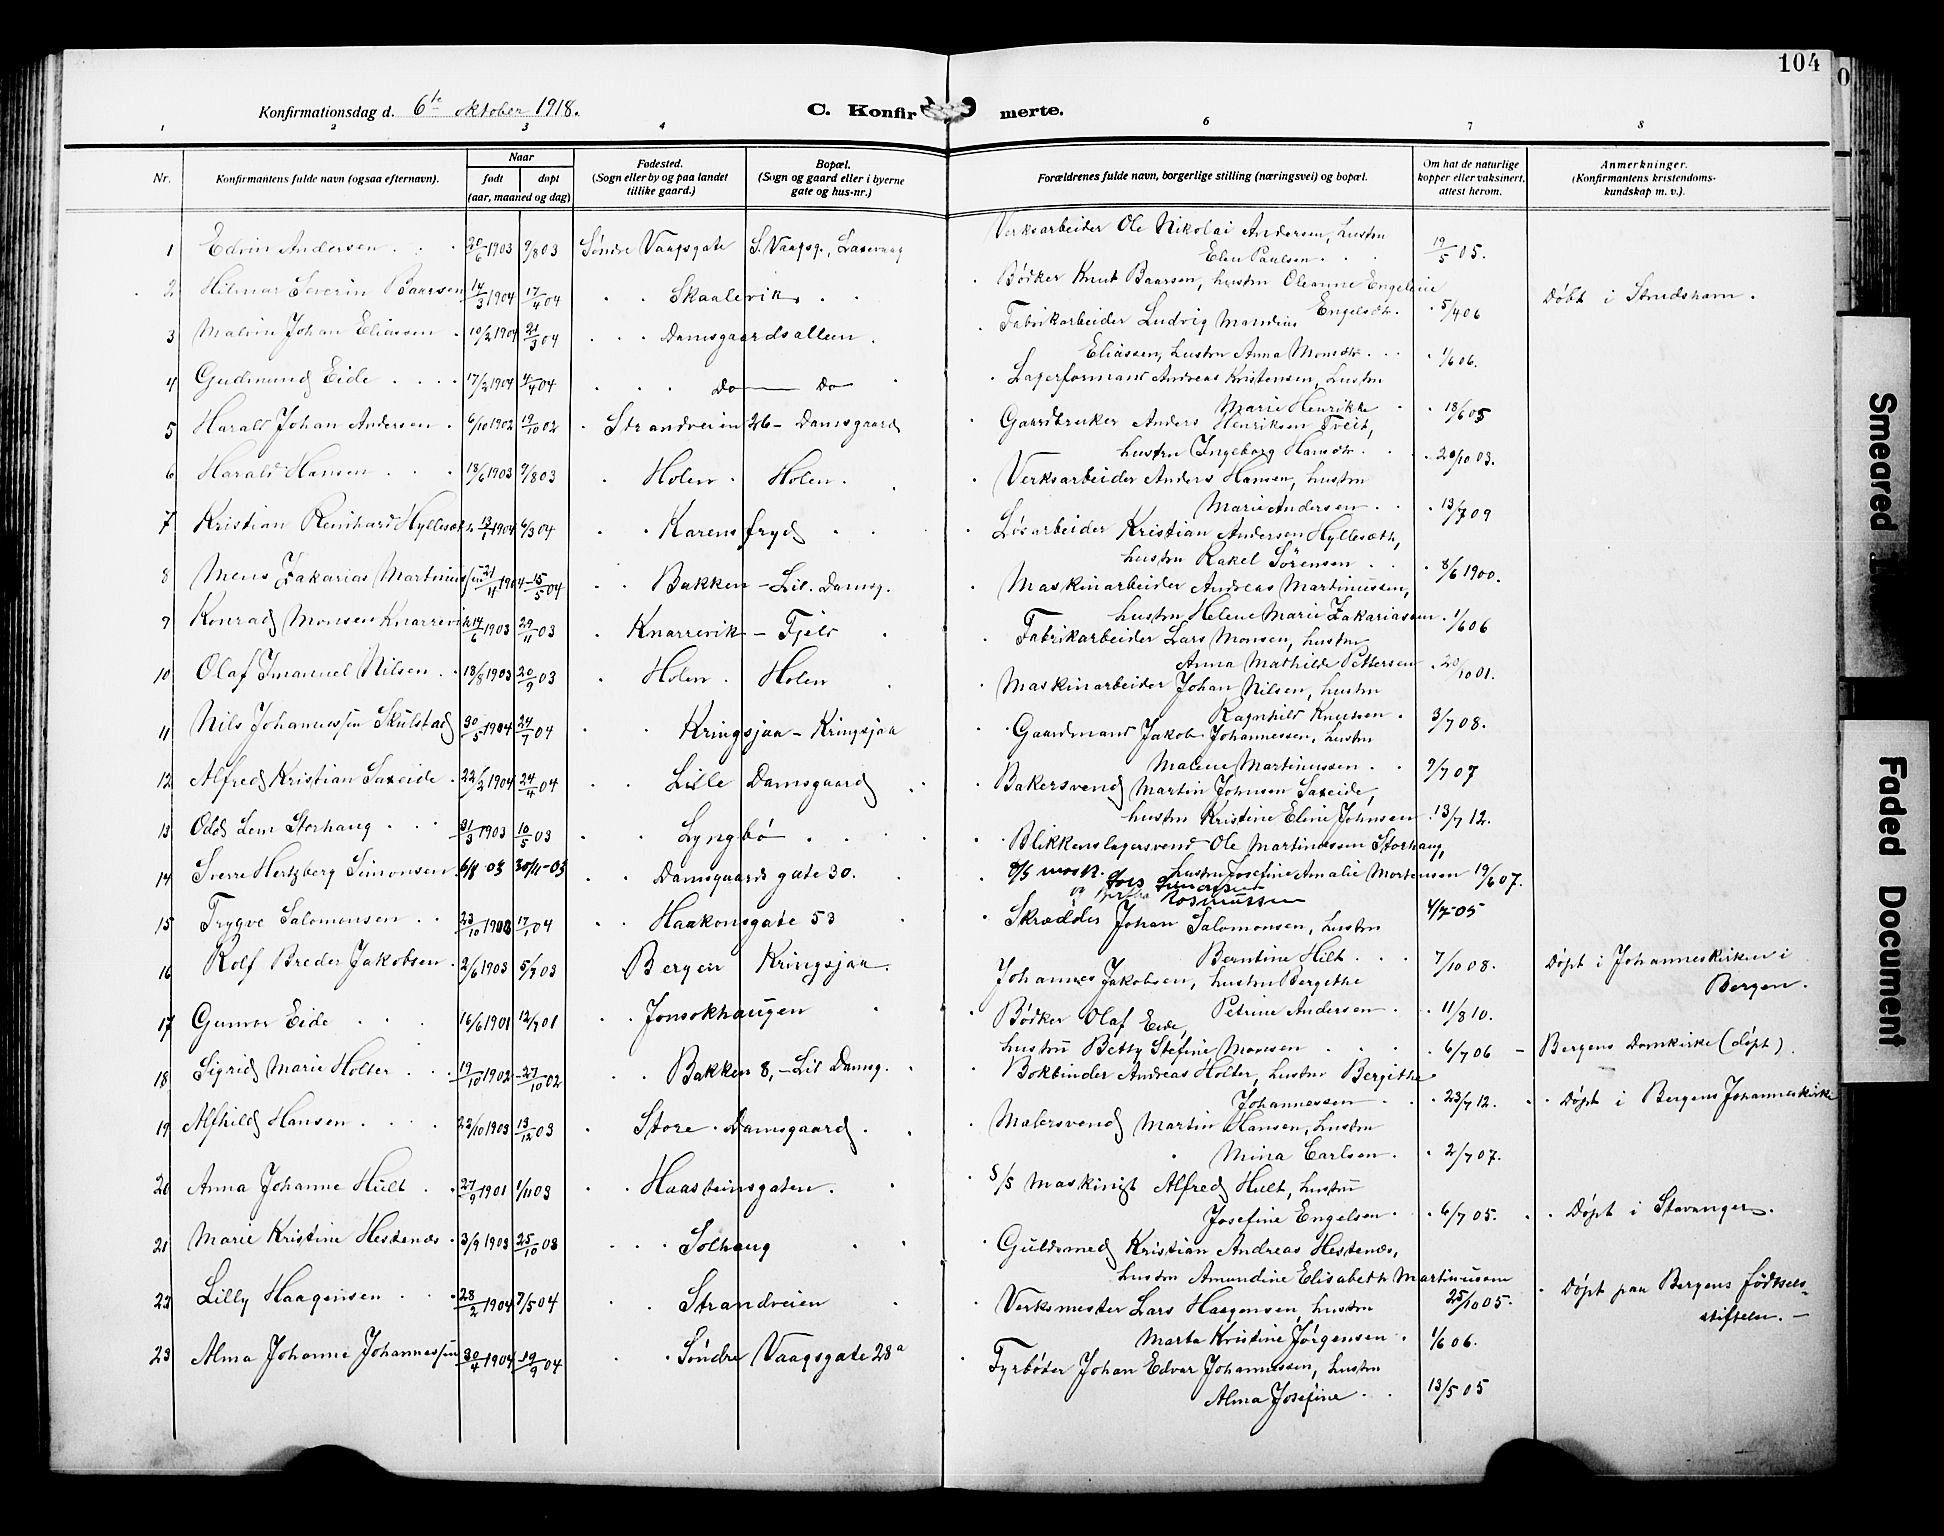 104
Konfirmationsdag d. 6te oktober 1918.
C. Konfirmerte.
1 2 3 4 6 7 8
Nr.
Konfirmantens fulde navn (ogsaa efternavn).
Naar
født døpt
(aar, maaned og dag)
Fødested.
(Sogn eller by og paa landet
tillike gaard.)
Bopæl.
(Sogn og gaard eller i byerne
gate og hus-nr.)
Forældrenes fulde navn, borgerlige stilling (næringsvei) og bopæl.
Om hat de naturlige
kopper eller vaksinert,
attest herom.
Anmerkninger.
(Konfirmantens kristendoms-
kundskap m. v.).
1 Edvin Andersen 1903 9/8 03 Søndre Vaagsgate S. Vaagsg., Laxevaag Verksarbeider Ole Nikolai Andersen, hustru
Elen Paulsen 19/5 05.
2 Hilmar Severin Baarsen 14/3 1904 17/4 04 Skaalevik Bødker Knut Baarsen, hustru Oleanne Engeline
Engelsdtr. 5/4 06 Døbt i Strudshavn.
3 Malvin Johan Eliassen 10/2 1904 21/3 04 Damsgaardsalleen. Fabrikarbeider Ludvig Mandius
Eliassen, hustru Anna Monsdtr. 1/6 06.
4 Gudmund Eide 17/2 1904 4/4 04 Do — Do Lagerformand Andreas Kristensen, hustru
Marie Henrikke 18/6 05
5 Harald Johan Andersen 6/10 1902 19/10 02 Strandveien 26 - Damsgaard Gaardbruker Anders Henriksen Tveit,
hustru Ingeborg Hansdtr. 20/10 03.
6 Harald Hansen 13/6 1903 9/8 03 Holen. Holen. Verksarbeider Anders Hansen, hustru
Marie Andersen 13/7 09
7 Kristian Reinhard Hyllesæth 1904 6/3 04 Karensfryd Løsarbeider Kristian Andersen Hyllesæth,
hustru Rakel Sørensen 8/6 1900.
8 Mens Zakarias Martinussen 1904 15/5 04 Bakken - Lil. Damsg. Maskinarbeider Andreas Martinussen,
hustru Helene Marie Zakariassen 1/6 06
9 Konrad Monsen Knarrevik 14/6 1903 29/11 03 Knarrevik - Fjeld Fabrikarbeider Lars Monsen, hustru
Anna Mathilde Pettersen 20/10 01.
10 Olaf Imanuel Nilsen 18/8 1903 20/9 03 Holen. Holen Maskinarbeider Johan Nilsen, hustru
Ragnhild Knutsen 3/7 08.
11 Nils Johannessen Skulstad 30/5 1904 24/7 04 Kringsjaa - Kringsjaa Gaardmand Jakob Johannessen, hustru
Malene Martinussen 9/7 07
12 Alfred Kristian Saxeide 22/2 1904 24/4 04 Lille Damsgaard Bakersvend Martin Johnsen Saxeide,
hustru Kristine Eline Johnsen 13/7 12.
13 Odd Lem Storhaug 31/3 1903 10/5 03 Lyngbø Blikkenslagersvend Ole Martinussen Storhaug,
hustru Josefine Amalie Mortensen 19/6 07.
14 Sverre Hertzberg Simonsen 6/8 03 30/11-03 Damsgaards gate 30. S/S mask.
Rasmussen 4/7-05
15 Trygve Salomonsen 23/10 1903 17/1 04 Haakonsgate 53 Skrædder Johan Salomonsen, hustru
Berntine Hilt 7/10 08.
16 Rolf Breder Jakobsen 2/6 1903 5/7 03 Bergen Kringsjaa. Johannes Jakobsen, hustru Bergithe
Petrine Andersen 11/8 10. Døpt i Johanneskirken i
Bergen.
17 Gunvor Eide 16/6 1901 12/7 01 Jonsokhaugen Bødker Olaf Eide,
hustru Betty Stefine Monsen 6/7 06 - Bergens Domkirke (døpt).
18 Sigrid Marie Holter 19/10 1902 27/10 02 Bakken 8, - Lil Damsg. Bokbinder Andreas Holter, hustru Bergithe
Johannessen 23/7 12. Døpt i Bergens Johanneskirke
19 Alfhild Hansen 22/10 1903 13/12 03 Store Damsgaard. Malersvend Martin Hansen, hustru
Mina Carlsen 2/7 07.
20 Anna Johanne Hult 27/9 1901 1/11 03 Haasteinsgaten. S/S Maskinist Alfred Hult, hustru
Josefine Engelsen 6/7 05. Døpt i Stavanger.
21 Marie Kristine Hestenæs 3/9 1903 25/10 03 Solhaug Guldsmed Kristian Andreas Hestenæs,
hustru Amundine Elisabeth Martinussen 25/10 05.
22 Lilly Haagensen 28/2 1904 7/5 04 Strandveien Verksmester Lars Haagensen, hustru
Marta Kristine Jørgensen 1/6 06. Døpt paa Bergens fødsels-
stiftelse. -
23 Alma Johanne Johannessen 30/4 1904 19/9 04 Søndre Vaagsgate 28a Fyrbøter Johan Edvar Johannessen, hustru
Alma Josefine 13/5 05
Smeared
Faded Document